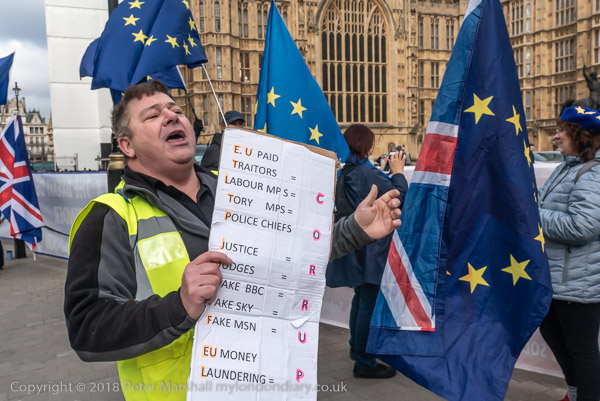 E.U PAID
TRAITORS
LABOUR MPS =
TORY MPS =
POLICE CHIEFS
JUSTICE
UDGES =
AKE BBC =
AKE SKY =
FAKE MSN =
EU MONEY
LAUNDERING =
CORRUP
Copyright © 2018 Peter Marshall mylondondiary.co.uk